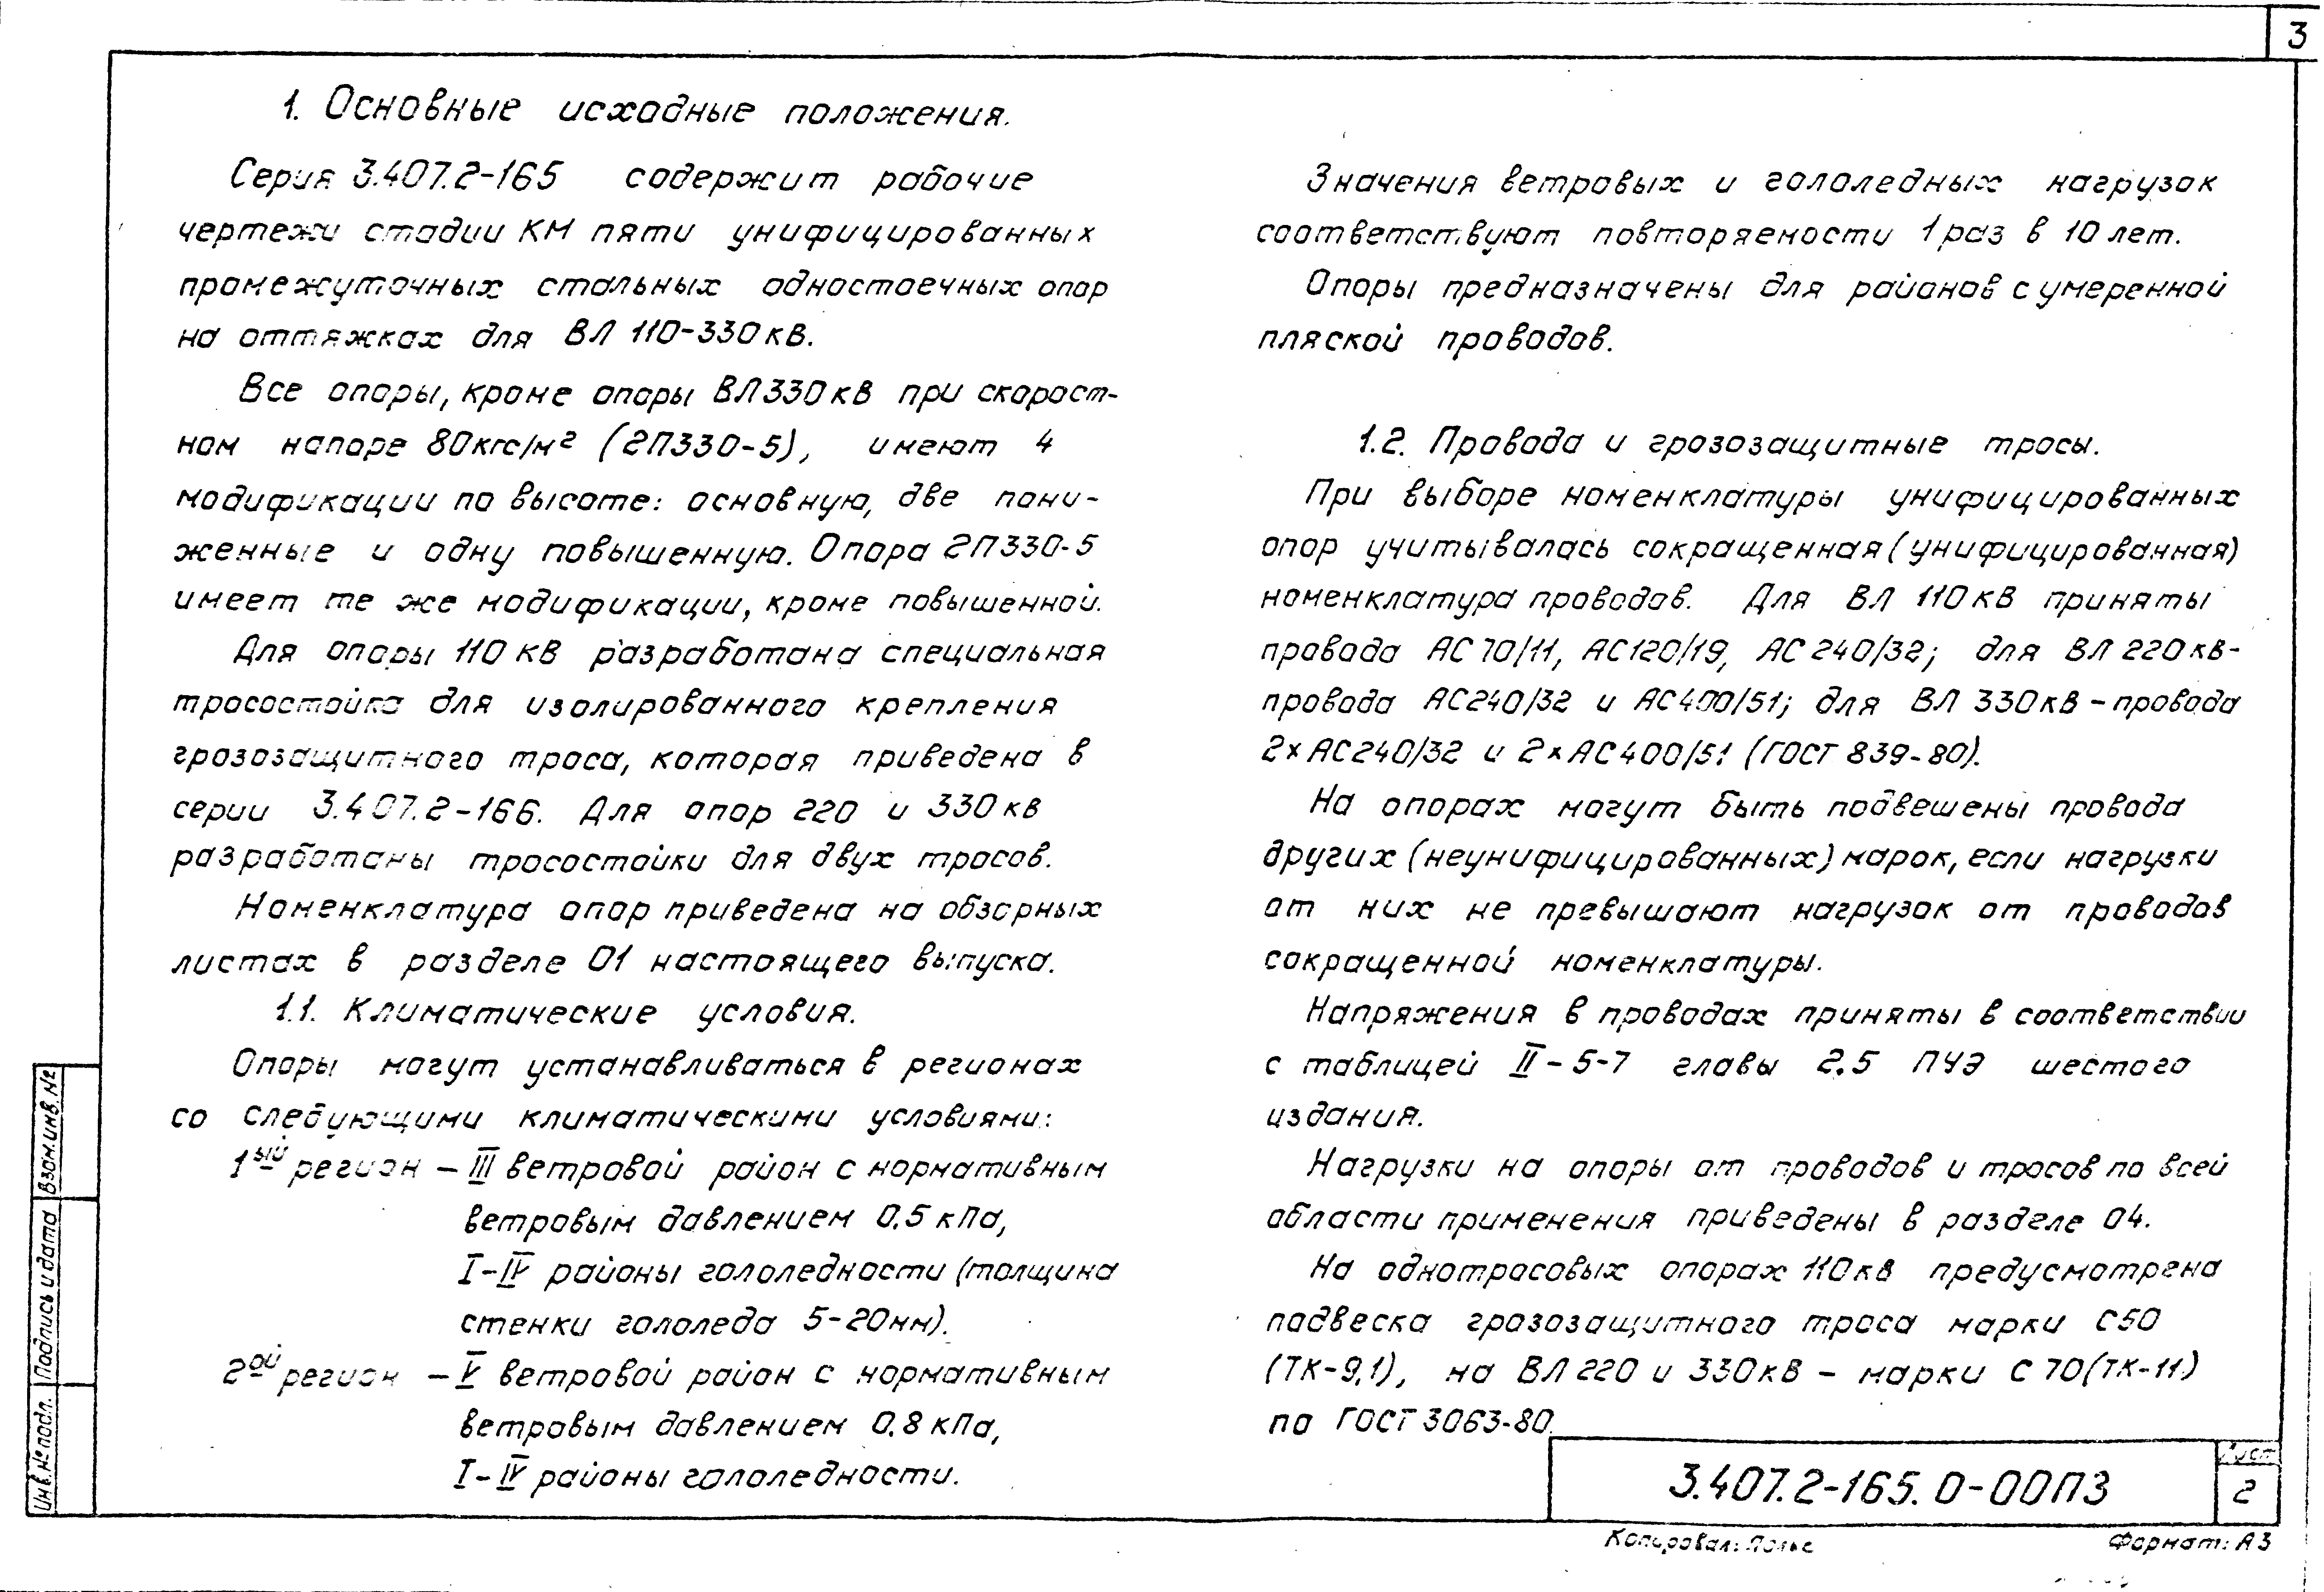 3
1. Основные исходные положения.
Серия 3.407.2-165 содержит рабочие
чертежи стадии КМ пяти унифицированных
промежуточных стальных одностоечных опор
на оттяжках для ВЛ 110-330кВ.
Все опоры, кроме опоры ВЛ330кВ при скорост-
ном напоре 80кгс/м² (2П330-5), имеют 4
модификации по высоте: основную, две пони-
женные и одну повышенную. Опора 2П330-5
имеет те же модификации, кроме повышенной.
Для опоры 110 кВ разработана специальная
тросостойка для изолированного крепления
грозозащитного троса, которая приведена в
серии 3.407.2-166. Для опор 220 и 330кВ
разработаны тросостойки для двух тросов.
Номенклатура опор приведена на обзорных
листах в разделе 01 настоящего выпуска.
1.1. Климатические условия.
Опоры могут устанавливаться в регионах
со следующими климатическими условиями:
1ый регион – III ветровой район с нормативным
ветровым давлением 0.5 кПа,
I-IV районы гололедности (толщина
стенки гололеда 5-20мм).
2ой регион – V ветровой район с нормативным
ветровым давлением 0.8 кПа,
I-IV районы гололедности.
Значения ветровых и гололедных нагрузок
соответствуют повторяемости 1 раз в 10 лет.
Опоры предназначены для районов с умеренной
пляской проводов.
1.2. Провода и грозозащитные тросы.
При выборе номенклатуры унифицированных
опор учитывалась сокращенная (унифицированная)
номенклатура проводов. Для ВЛ 110кВ приняты
провода АС 70/11, АС120/19, АС 240/32; для ВЛ 220кВ-
провода АС240/32 и АС400/51; для ВЛ 330кВ – провода
2×АС240/32 и 2×АС400/51 (ГОСТ 839-80).
На опорах могут быть подвешены провода
других (неунифицированных) марок, если нагрузки
от них не превышают нагрузок от проводов
сокращенной номенклатуры.
Напряжения в проводах приняты в соответствии
с таблицей II-5-7 главы 2.5 ПУЭ шестого
издания.
Нагрузки на опоры от проводов и тросов по всей
области применения приведены в разделе 04.
На однотросовых опорах 110кВ предусмотрена
подвеска грозозащитного троса марки С50
(ТК-9,1), на ВЛ 220 и 330кВ – марки С 70(ТК-11)
по ГОСТ 3063-80.
Инв.№ подл. Подпись и дата Взам.инв.№
3.407.2-165.0-00ПЗ
Лист
2
Копировал:
Формат: А3